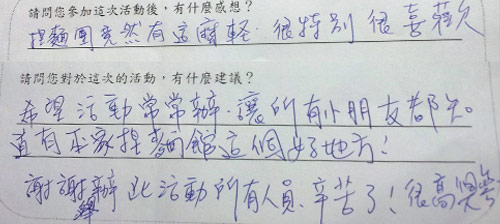 請問您參加這次活動後，有什麼感想？
捏麵團竟然有這麼輕．很特別 很喜歡
請問您對於這次的活動，有什麼建議？
希望活動常常辦 讓所有小朋友都知
道有一家捏麵館這個好地方！
謝謝辦此活動所有人員、辛苦了！很高興